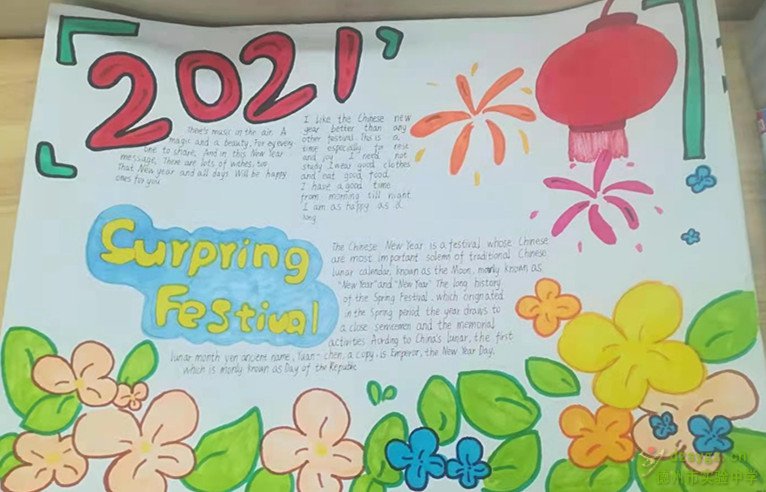 2021
There's music in the air. A
magic and a beauty, For everyone
one to share, And in this New Year
message, There are lots of wishes, too
That New year and all days Will be happy
ones for you
I like the Chinese new
year better than any
other festival. This is a
time especially for rest
and joy I need not
study I wear good clothes
and eat good food.
I have a good time
from morning till night
I am as happy as a
long
Surpring
Festival
The Chinese New Year is a festival whose Chinese
are most important solemn of traditional Chinese
lunar calendar, known as the Moon, monly known as
"New Year" and "New Year" The long history
of the Spring Festival, which originated
in the Spring period the year draws to
a close and the memorial
activities Arding to China's lunar, the first
lunar month yen ancient name, Yuan-chen, a copy, is Emperor, the New Year Day,
which is monly known as Day of the Republic